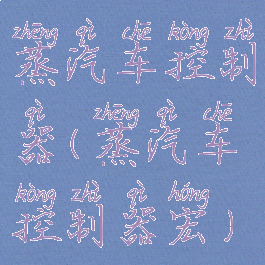 zhēng qì chē kòng zhì
蒸汽车控制
qì zhēng qì chē
器(蒸汽车
kòng zhì qì hóng
控制器宏)